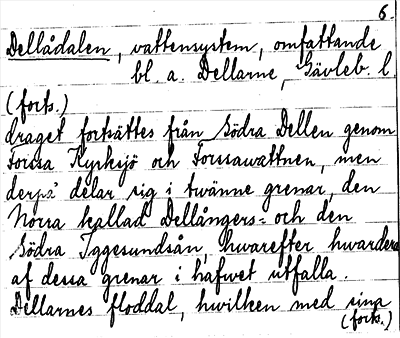 6.
Dellådalen, vattensystem, omfattande
bl. a. Dellarne, Gävleb. l.
(forts.)
draget fortsättes från Södra Dellen genom
Forssa Kyrksjö och Forssawattnen, men
derpå delar sig i twänne grenar, den
Norra kallad Dellångers- och den
Södra Iggesundsån, hwarefter hwardera
af dessa grenar i hafwet utfalla.
Dellarnes floddal, hwilken med sina
(forts.)